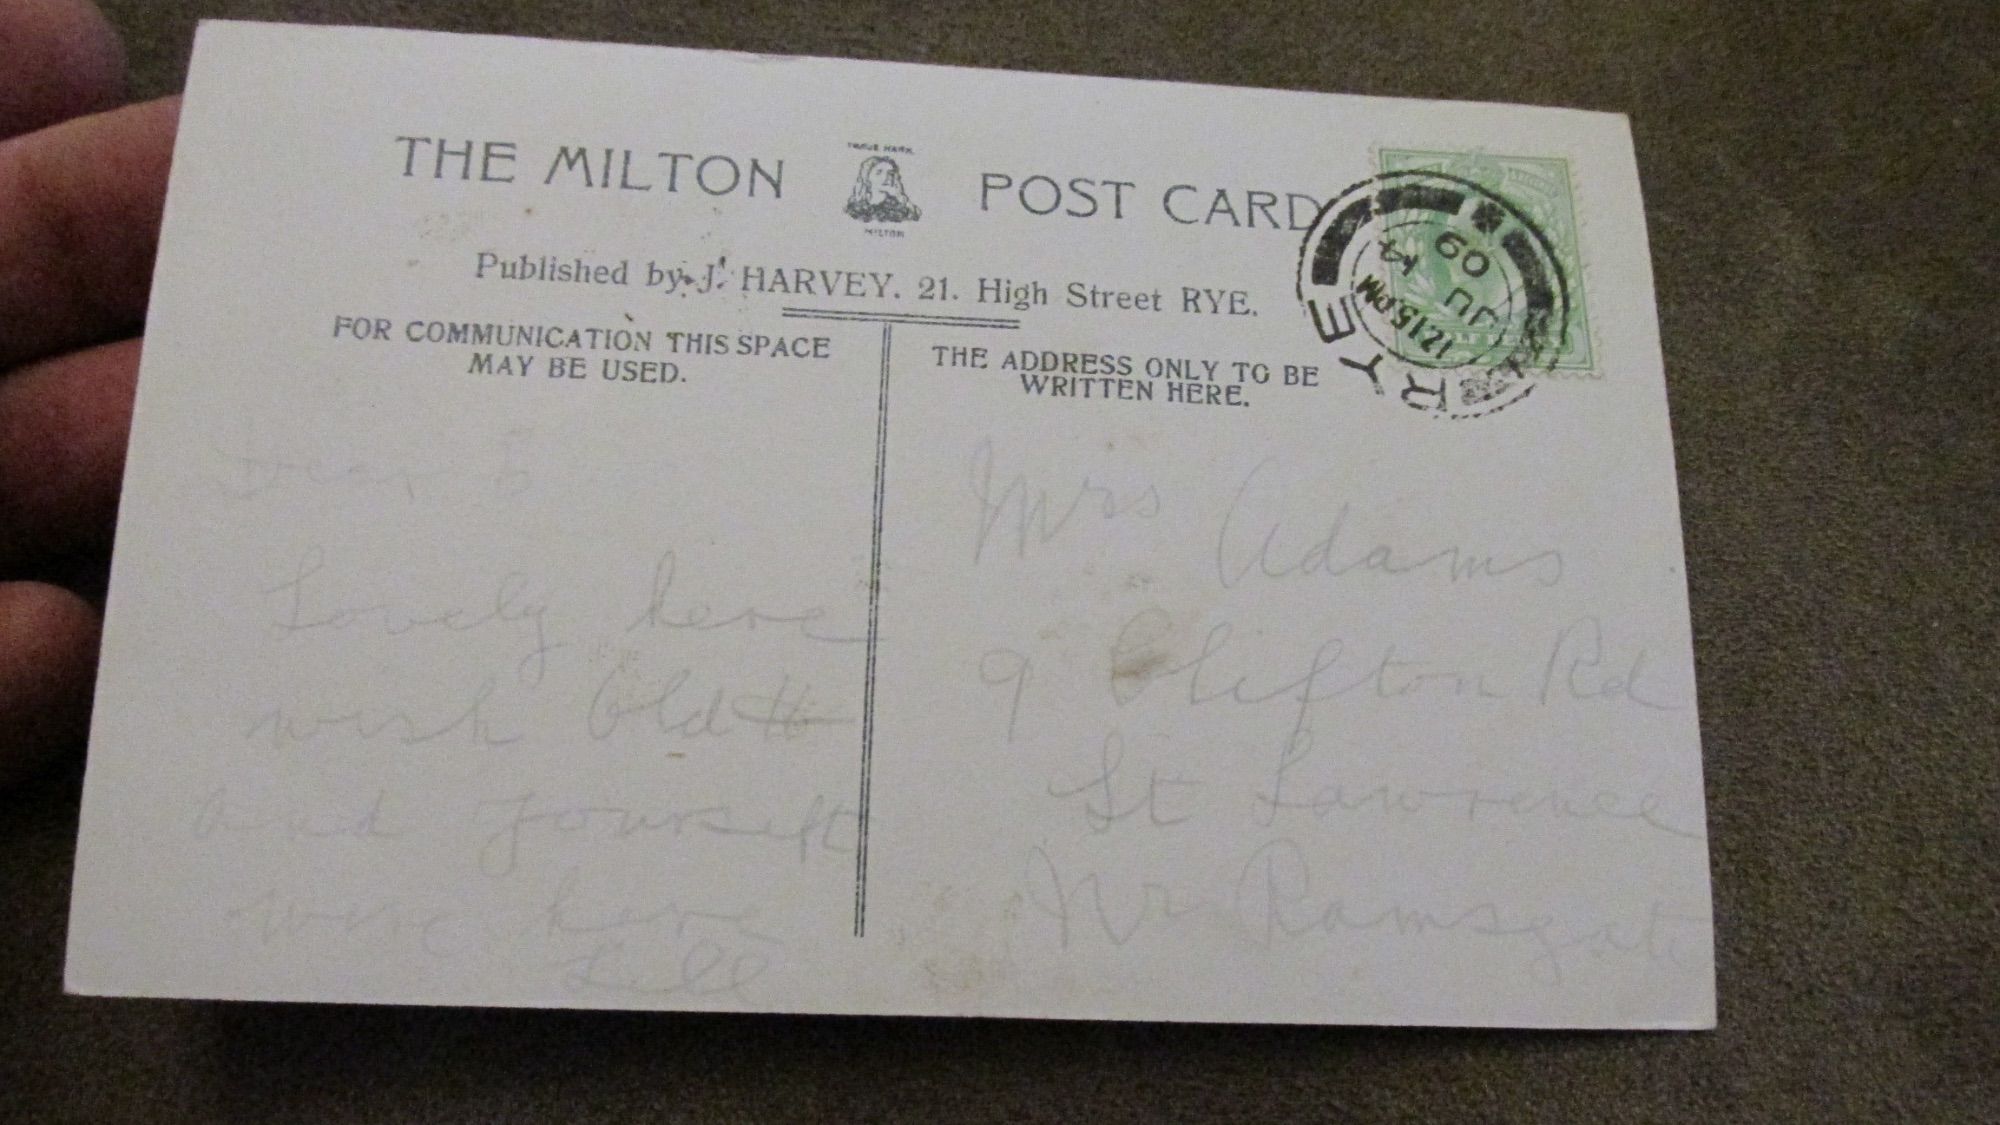 THE MILTON POST CARD
TRADE MARK
MILTON
Published by J. HARVEY. 21. High Street RYE.
FOR COMMUNICATION THIS SPACE
MAY BE USED.
THE ADDRESS ONLY TO BE
WRITTEN HERE.
RYE
12.15 PM
JU 14
09
Dear
Lovely here
wish Old H
and yourself
were here
Lill
Mrs Adams
9 Clifton Rd
St Lawrence
Nr Ramsgate